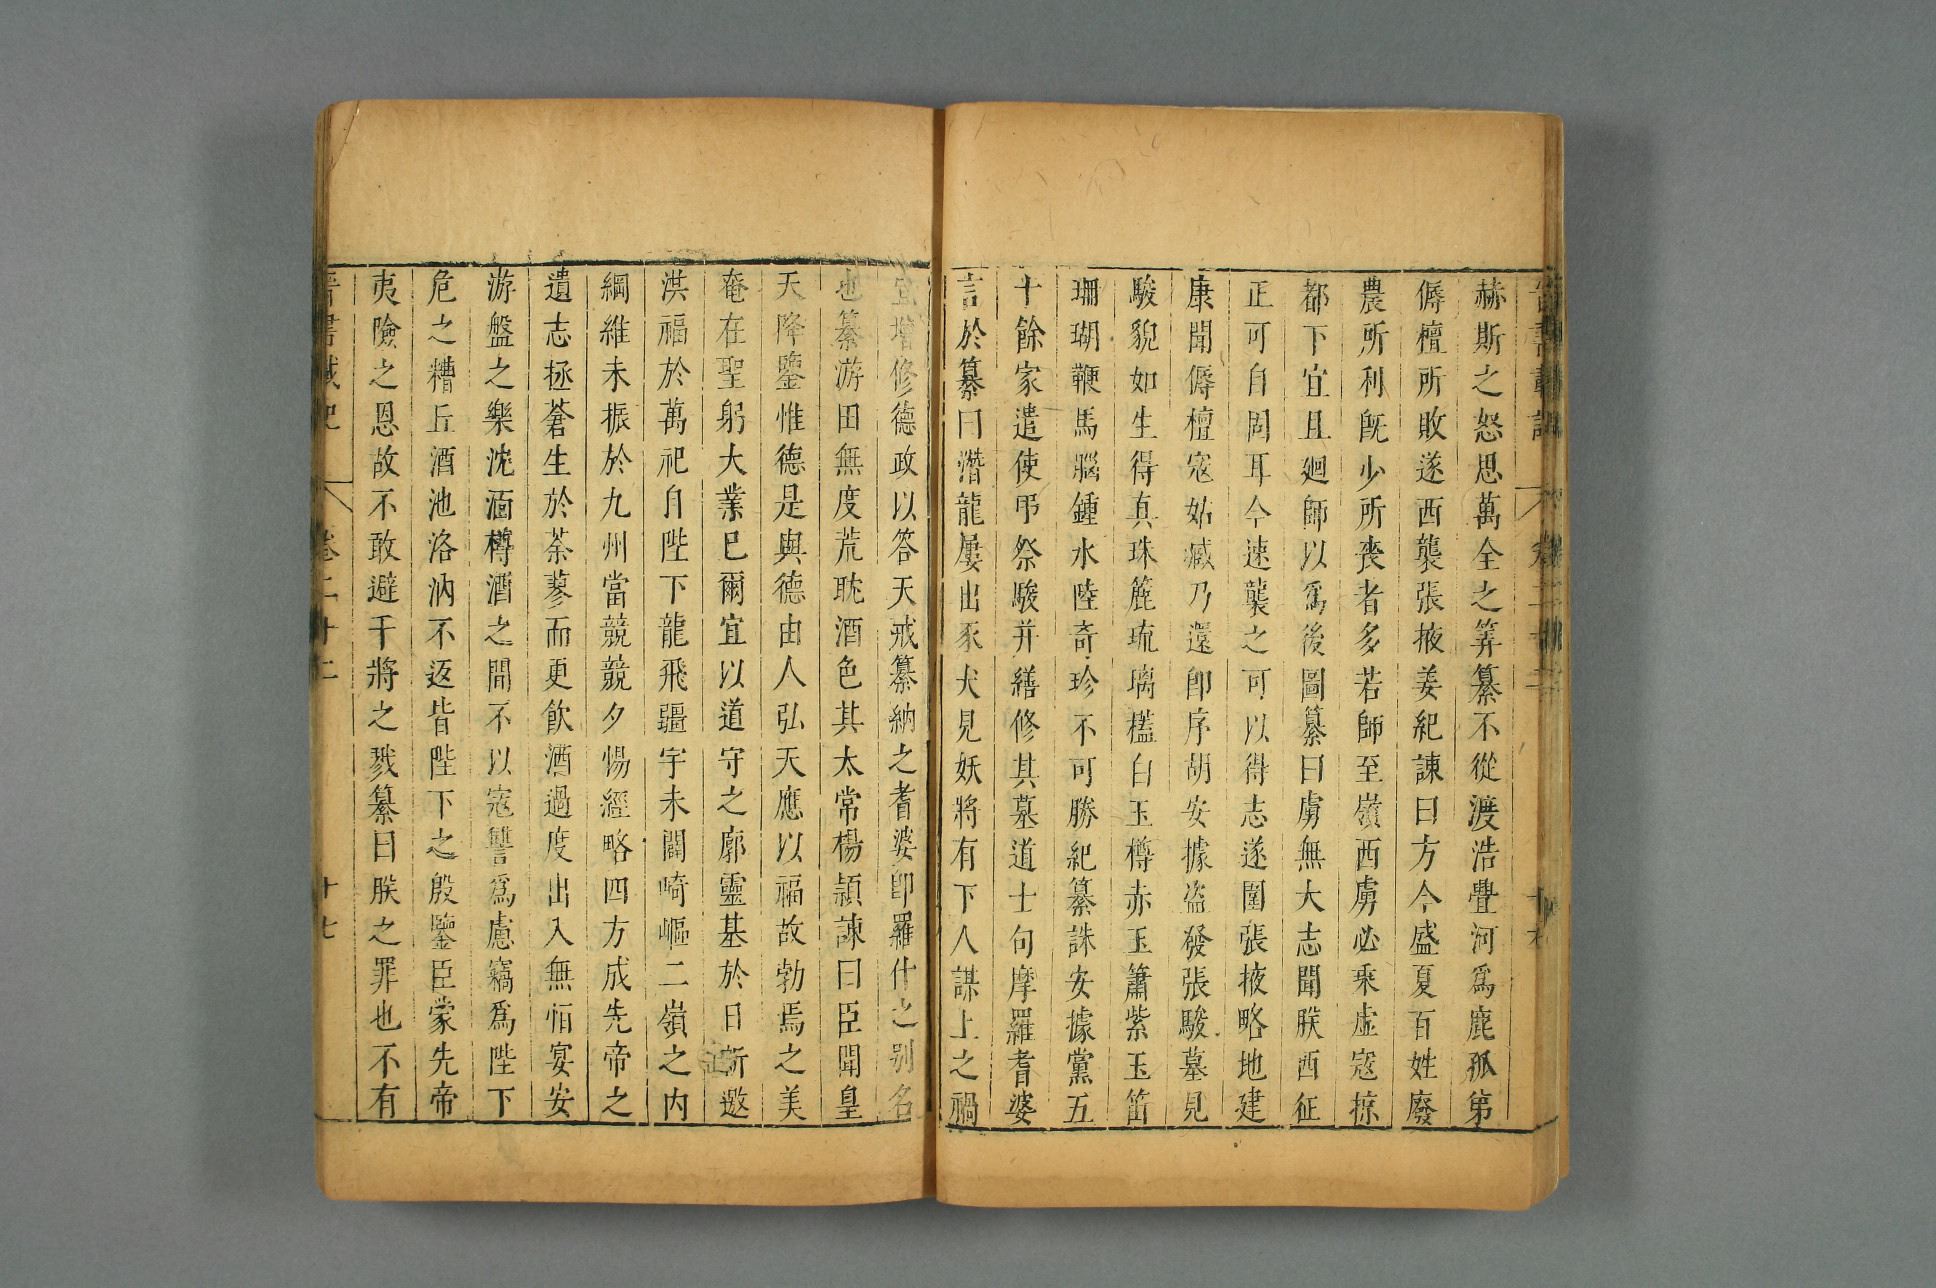 赫斯之怒思萬全之筭纂不從渡浩亹河爲鹿孤第
傉檀所敗遂西襲張掖姜紀諫曰方今盛夏百姓廢
農所利旣少所喪者多若師至嶺西虜必乘虛寇掠
都下宜且廻師以爲後圖纂曰虜無大志聞朕西征
正可自固耳今速襲之可以得志遂圍張掖略地建
康聞傉檀寇姑臧乃還卽序胡安據盜發張駿墓見
駿貌如生得真珠簏琉璃榼白玉樽赤玉簫紫玉笛
珊瑚鞭馬腦鍾水陸奇珍不可勝紀纂誅安據黨五
十餘家遣使弔祭駿并繕修其墓道士句摩羅耆婆
言於纂曰潛龍屢出豕犬見妖將有下人謀上之禍
宜增修德政以答天戒纂納之耆婆卽羅什之别名
也纂游田無度荒耽酒色其太常楊頴諫曰臣聞皇
天降鑒惟德是與德由人弘天應以福故勃焉之美
奄在聖躬大業已爾宜以道守之廓靈基於日新邀
洪福於萬祀自陛下龍飛疆宇未闢崎嶇二嶺之内
綱維未振於九州當兢兢夕惕經略四方成先帝之
遺志拯蒼生於荼蓼而更飲酒過度出入無恒宴安
游盤之樂沈湎樽酒之間不以寇讐爲慮竊爲陛下
危之糟丘酒池洛汭不返皆陛下之殷鑒臣蒙先帝
夷險之恩故不敢避干將之戮纂曰朕之罪也不有
晋書載記 卷二十二 十七